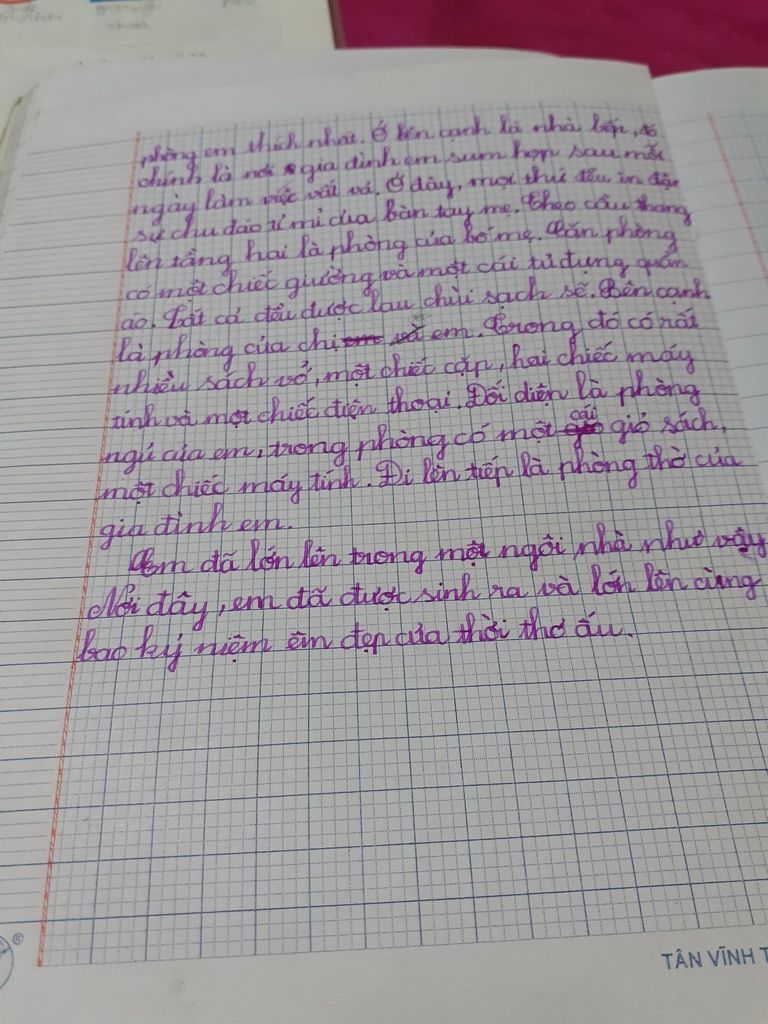 phòng em thích nhất. Ở bên cạnh là nhà bếp, đó
chính là nơi gia đình em sum họp sau mỗi
ngày làm việc vất vả. Ở đây, mọi thứ đều in đậm
sự chu đáo tỉ mỉ của bàn tay mẹ. Theo cầu thang
lên tầng hai là phòng của bố mẹ. Căn phòng
có một chiếc giường và một cái tủ đựng quần
áo. Tất cả đều được lau chùi sạch sẽ. Bên cạnh
là phòng của chị em. Trong đó có rất
nhiều sách vở, một chiếc cặp, hai chiếc máy
tính và một chiếc điện thoại. Đối diện là phòng
ngủ của em, trong phòng có một cái giỏ sách,
một chiếc máy tính. Đi lên tiếp là phòng thờ của
gia đình em.
Em đã lớn lên trong một ngôi nhà như vậy
Nơi đây, em đã được sinh ra và lớn lên cùng
bao ký niệm êm đẹp của thời thơ ấu.
TÂN VĨNH T